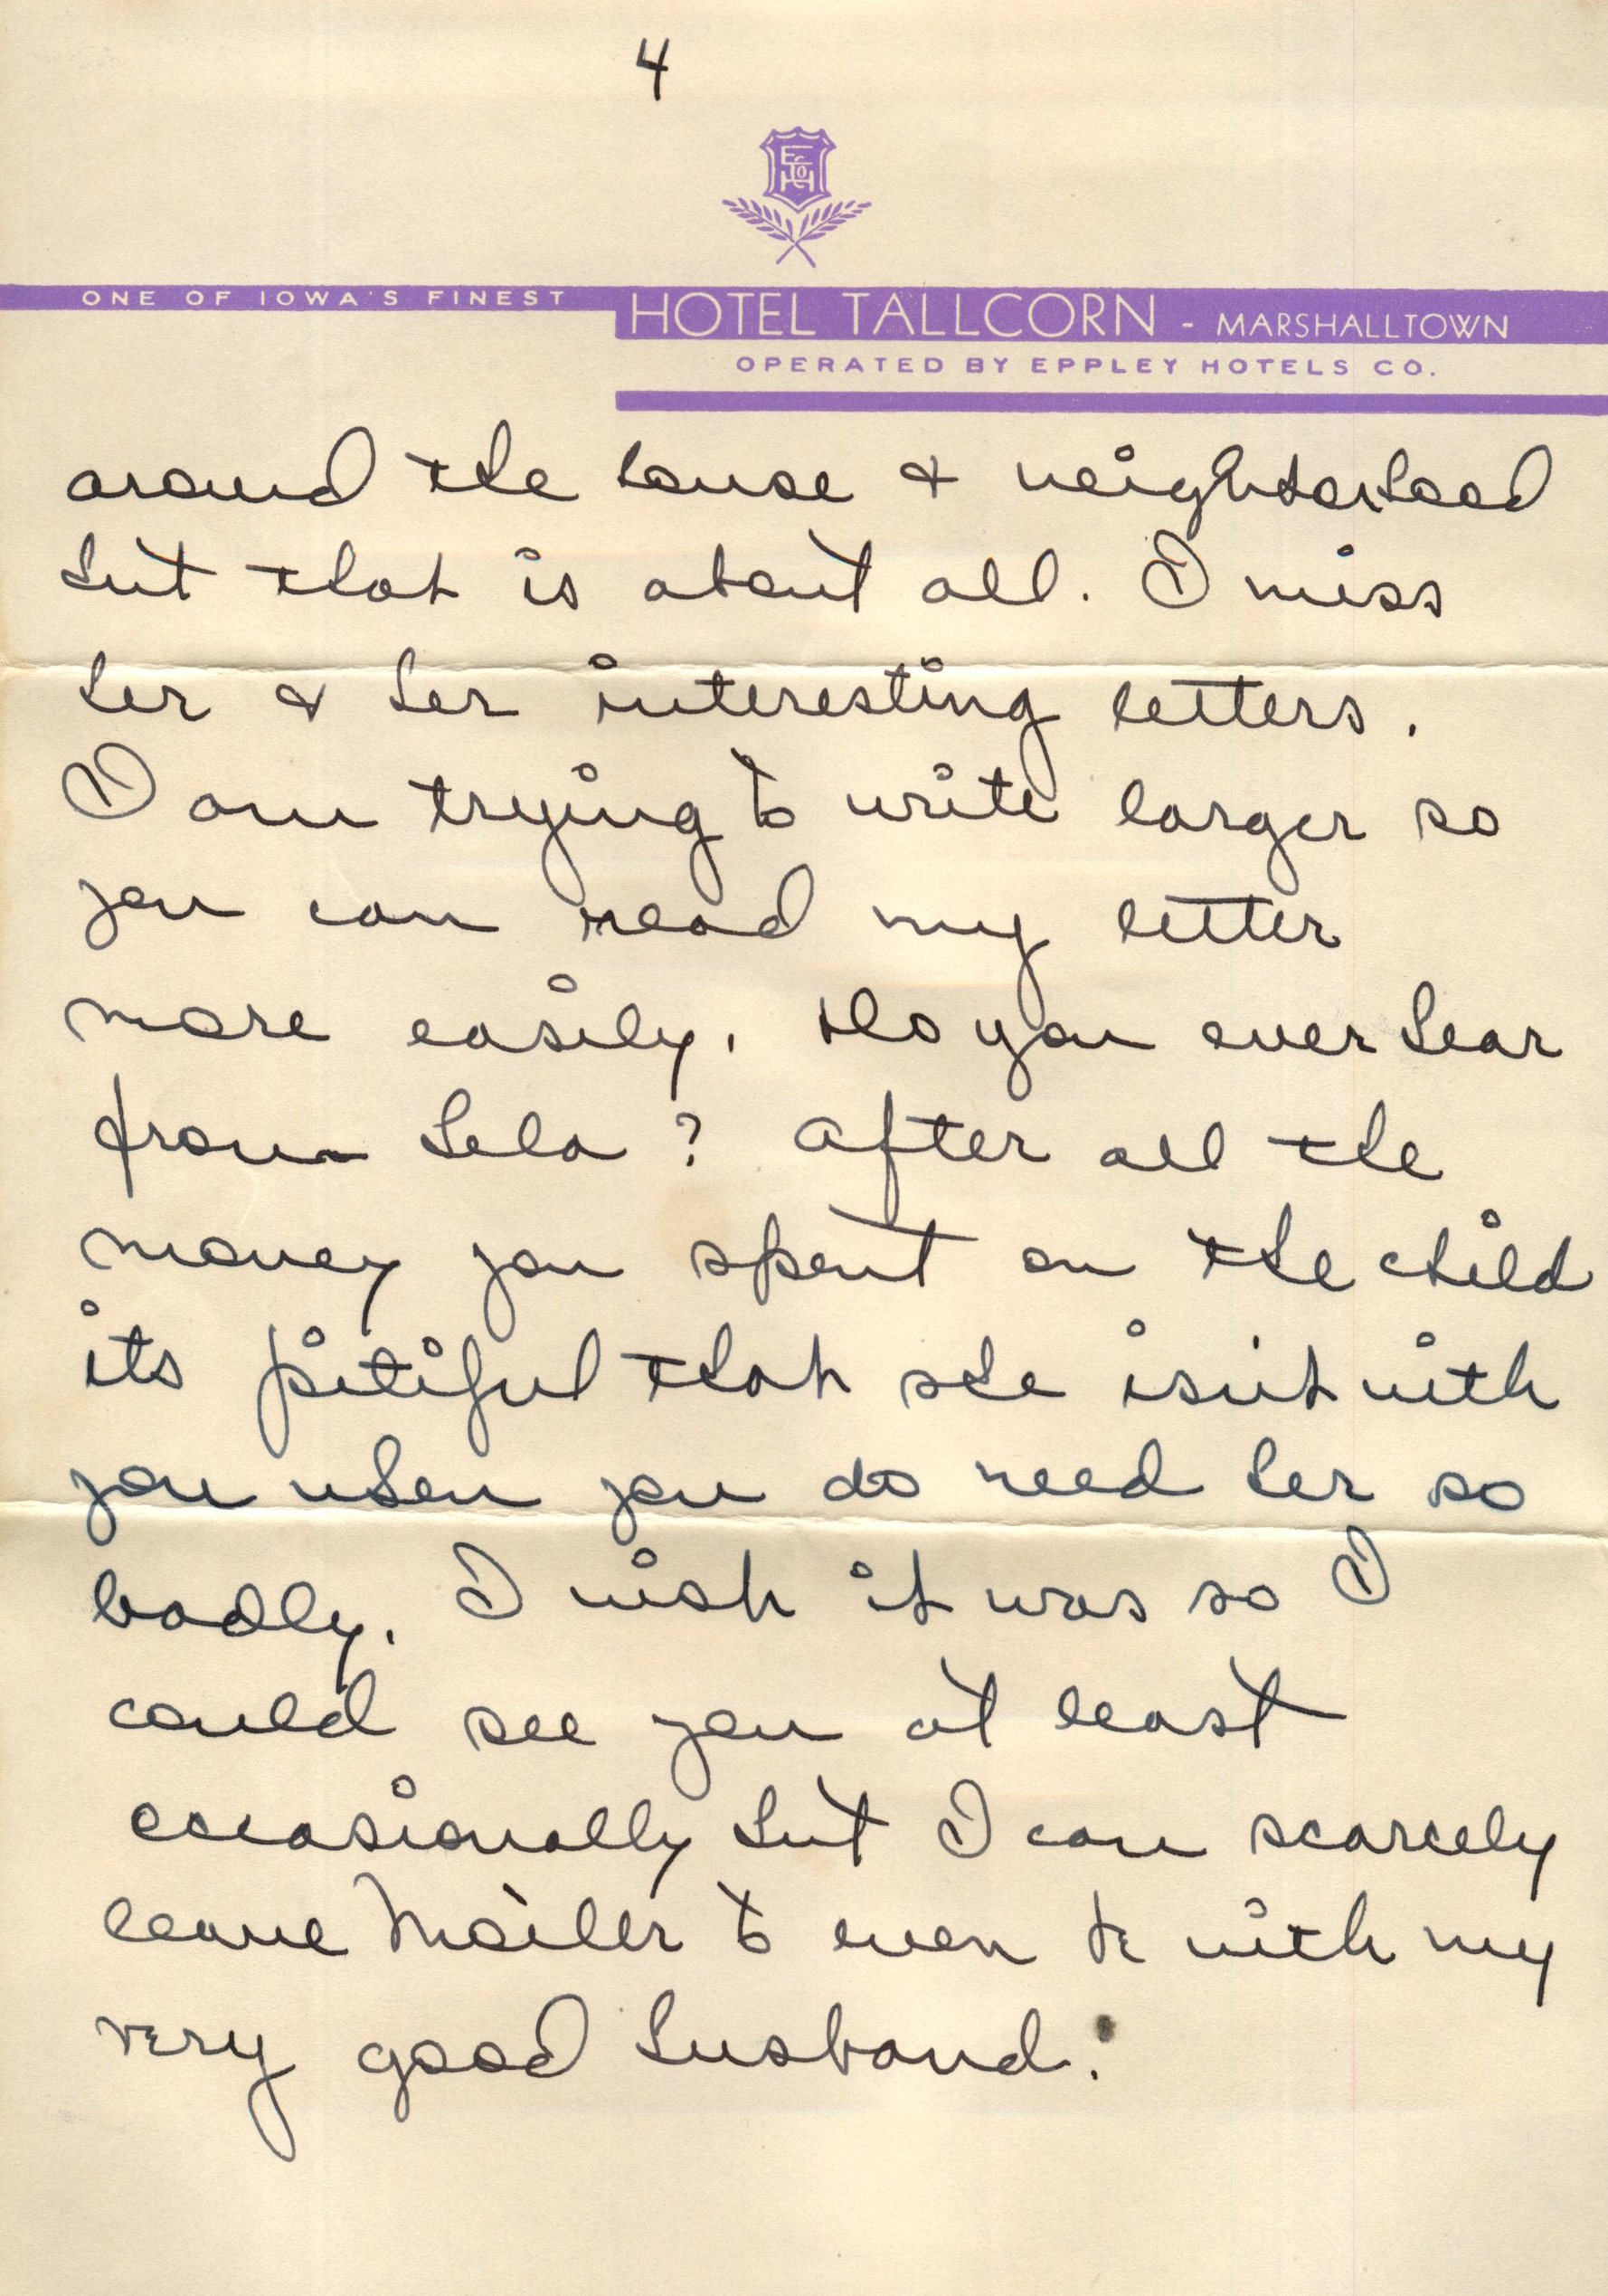 4
E Co H
ONE OF IOWA'S FINEST
HOTEL TALLCORN - MARSHALLTOWN
OPERATED BY EPPLEY HOTELS CO.
around the house & neighborhood
but that is about all. I miss
her & her interesting letters.
I am trying to write larger so
you can read my letter
more easily. Do you ever hear
from Lela? After all the
money you spent on the child
its pitiful that she isn't with
you when you do need her so
badly. I wish it was so I
could see you at least
occasionally but I can scarcely
leave Mother to even be with my
very good husband.